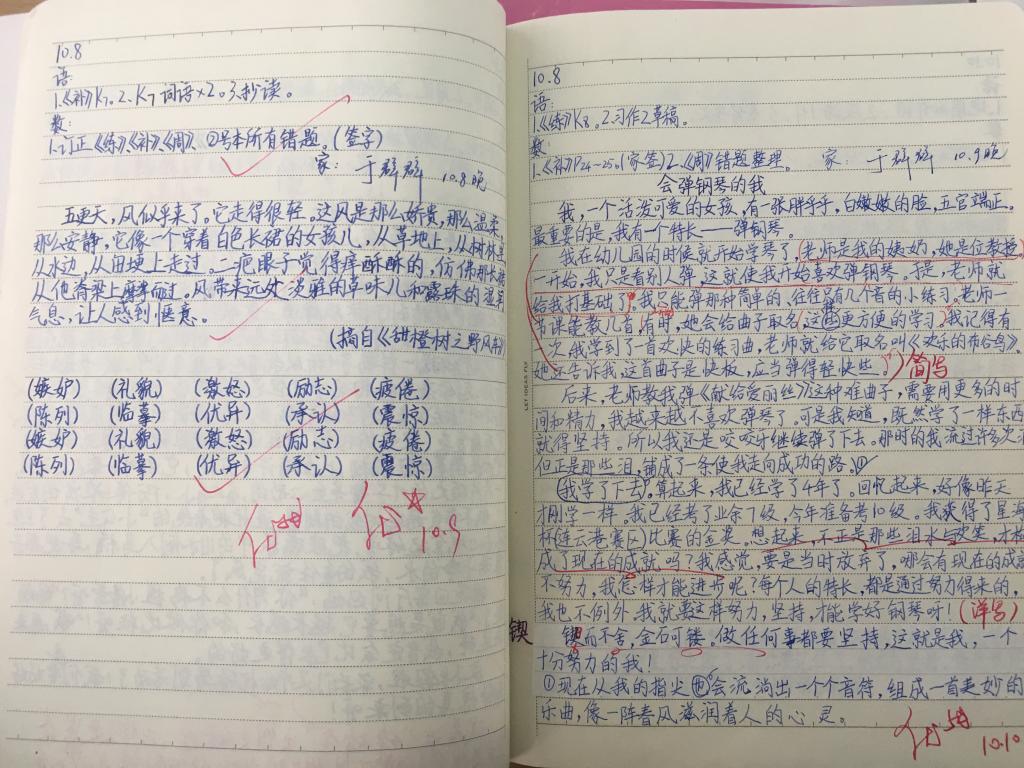 10.8
语:
1.《补》K7。2、K7词语×2。3.抄读。
数:
1.订正《练》、《补》、《周》、②号本所有错题。(签字)
家: 于群群 10.8.晚
五更天,风似乎来了。它走得很轻。这风是那么娇贵,那么温柔
那么安静,它像一个穿着白色长裙的女孩儿,从草地上,从树林里
从水边,从田埂上走过。二疤眼子觉得痒酥酥的,仿佛那长裙
从他脊梁上摩挲而过。风带来远处淡雅的草味儿和露珠的湿润
气息,让人感到惬意。
(摘自《甜橙树之野风车》)
(嫉妒) (礼貌) (激怒) (励志) (疲倦)
(陈列) (临摹) (优异) (承认) (震惊)
(嫉妒) (礼貌) (激怒) (励志) (疲倦)
(陈列) (临摹) (优异) (承认) (震惊)
10.9
10.8
语:
1.《练》K8。2.习作2草稿。
数:
1.《补》P24-25。(家签)2.《周》错题整理。 家: 于群群 10.9晚
会弹钢琴的我
我,一个活泼可爱的女孩,有一张胖乎乎,白嫩嫩的脸,五官端正。
最重要的是,我有一个特长——弹钢琴。
我在幼儿园的时候就开始学琴了,老师是我的姨奶,她是位教授。
一开始,我只是看别人弹,这就使我开始喜欢弹钢琴。于是,老师就
给我打基础了。我只能弹那种简单的、往往只有几个音的小练习。老师一
节课能教几首,有时,她会给曲子取名,这也更方便的学习。我记得有
一次,我学到了一首欢快的练习曲,老师就给它取名叫《欢乐的布谷鸟》。
她还告诉我,这首曲子是快板,应当弹得轻快些。) 简写
后来,老师教我弹《献给爱丽丝》这种难曲子,需要用更多的时
间和精力,我越来越不喜欢弹琴了。可是我知道,既然学了一样东西
就得坚持。所以我还是咬咬牙继续弹了下去。那时的我流过许多次泪
但正是那些泪,铺成了一条使我走向成功的路。①
我学了下去。算起来,我已经学了4年了。回忆起来,好像昨天
才刚学一样。我已经考了业余7级,今年准备考10级。我获得了星海
杯(连云港赛区)比赛的金奖。想起来,不正是那些泪水与欢笑,才构
成了现在的成就吗?我感觉,要是当时放弃了,哪会有现在的成就
不努力,我怎样才能进步呢?每个人的特长,都是通过努力得来的,
我也不例外。我就要这样努力,坚持,才能学好钢琴呀!(详写)
锲
锲而不舍,金石可镂。做任何事都要坚持,这就是我,一个
十分努力的我!
①现在从我的指尖也会流淌出一个个音符,组成一首美妙的
乐曲,像一阵春风滋润着人的心灵。
10.10